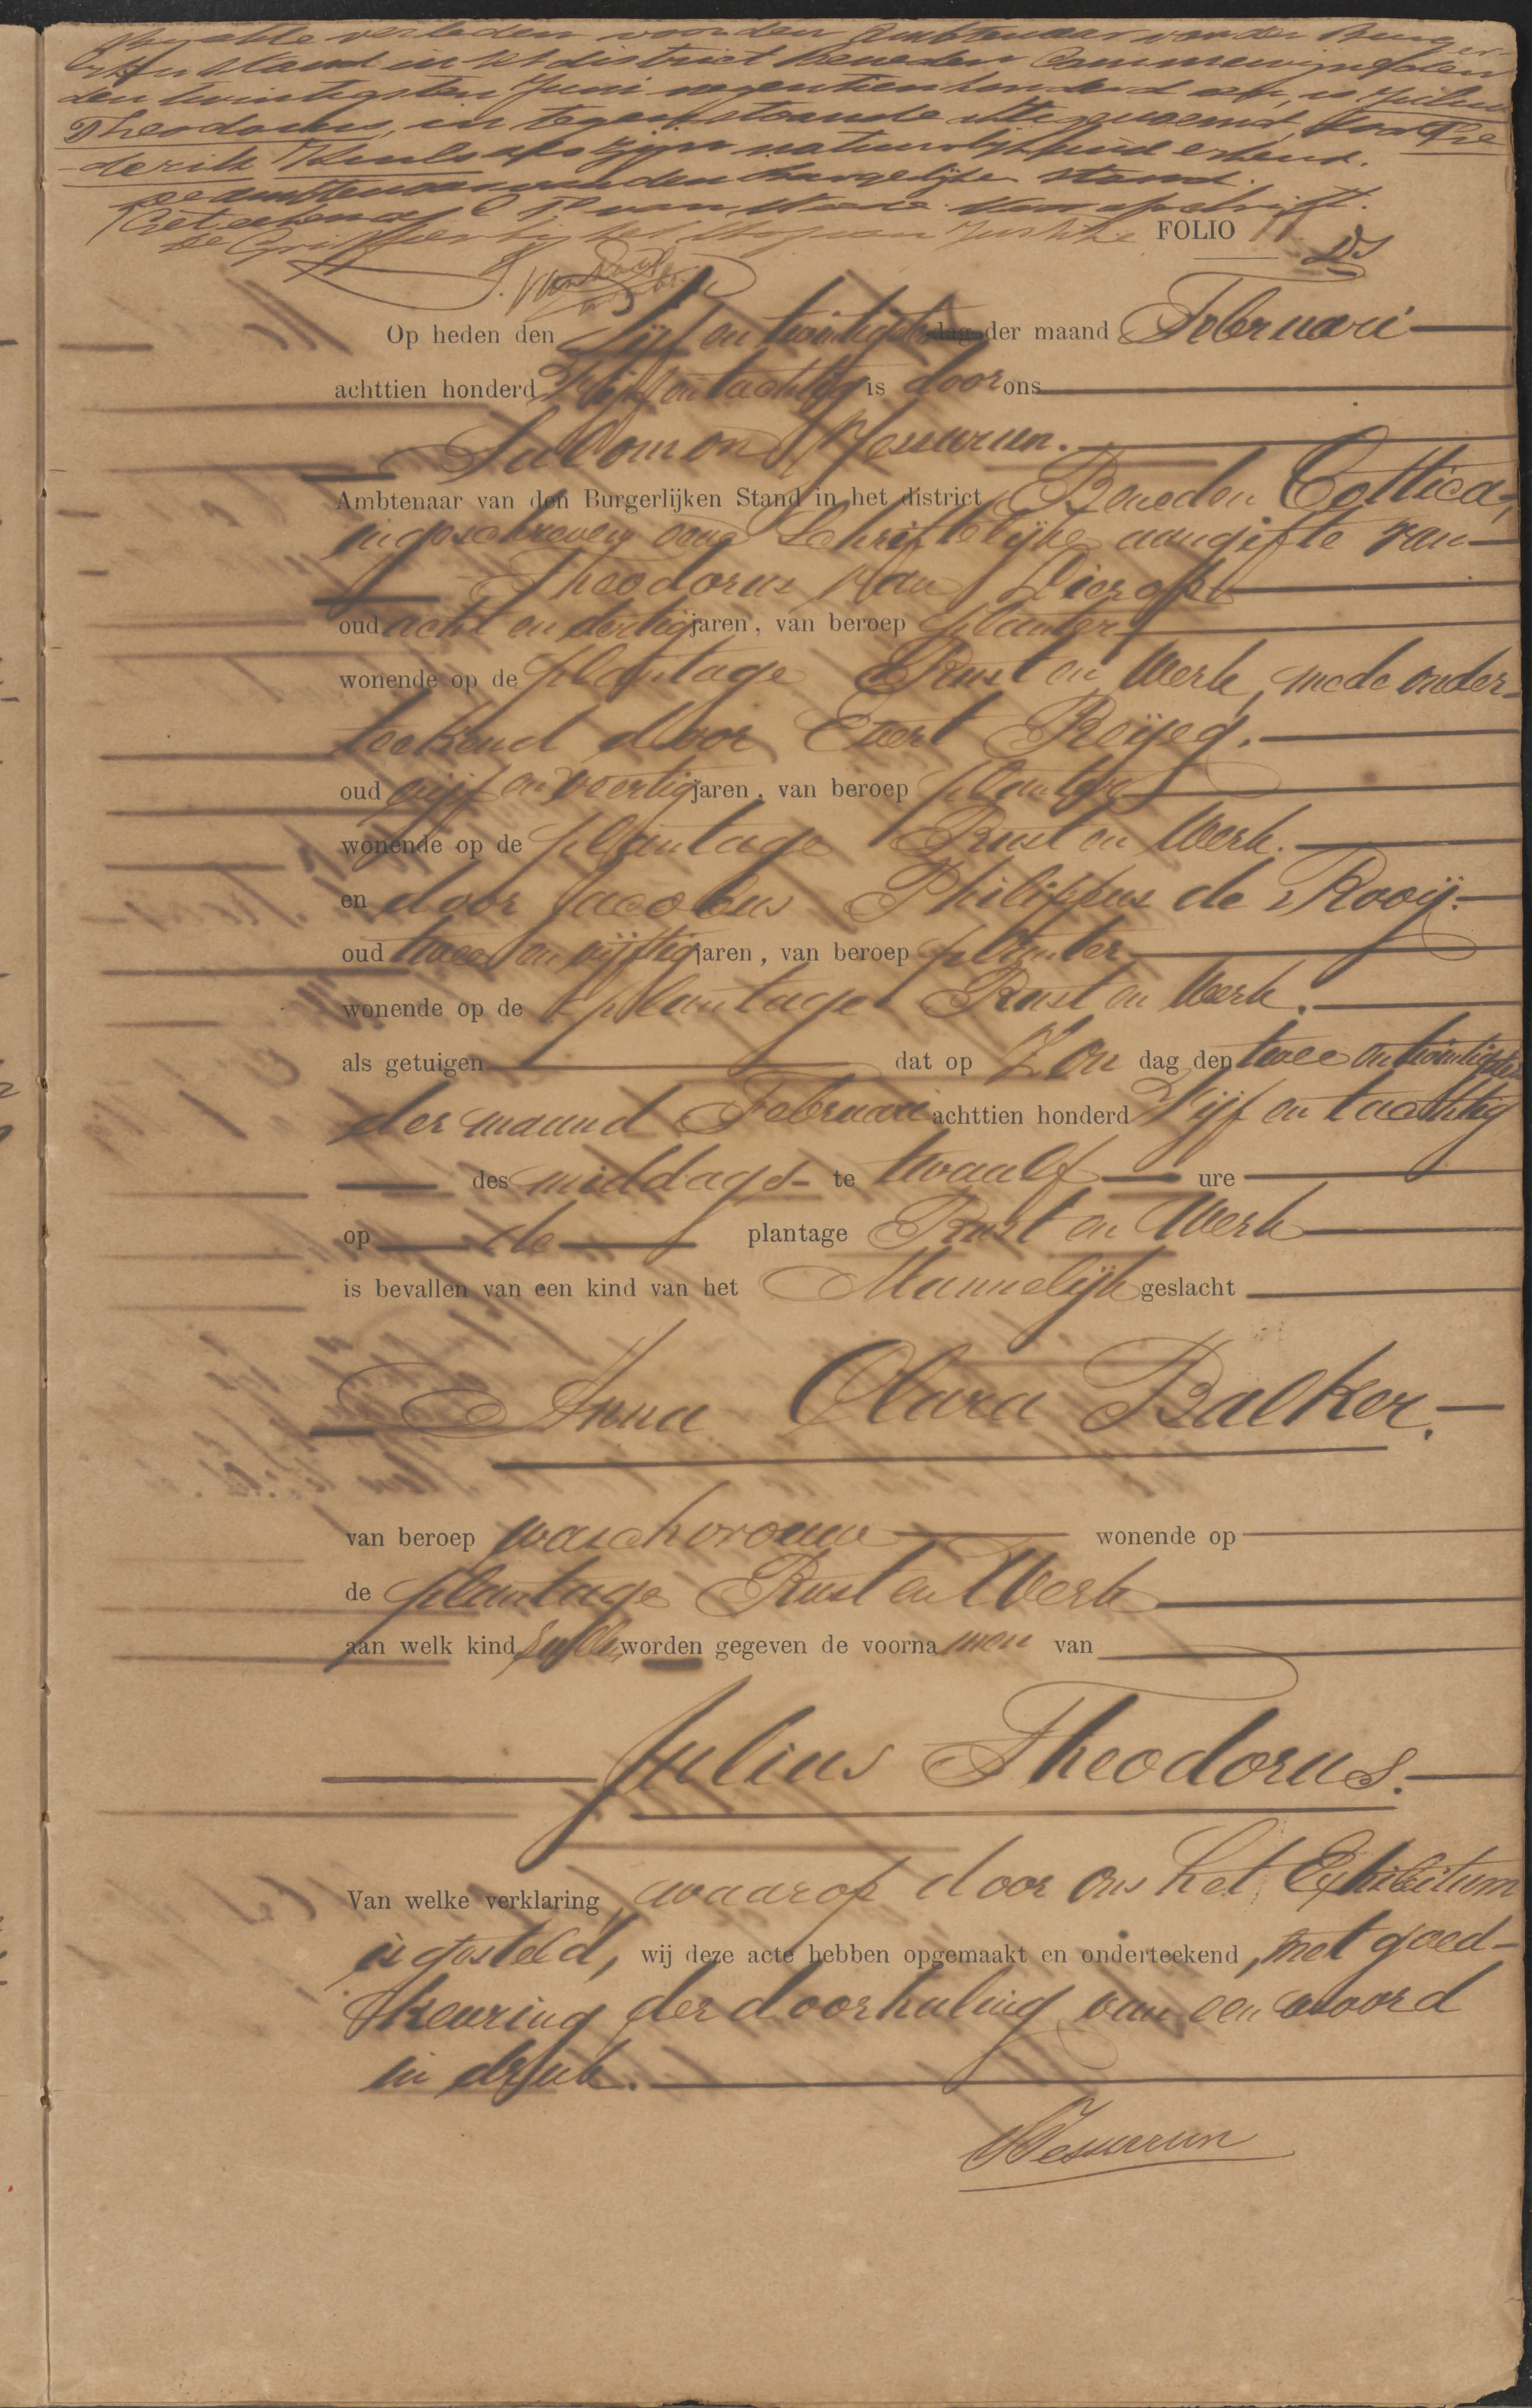 Bij akte verleden voor den Ambtenaar van den Burger
lijken Stand in het district Beneden Commewijne
den twintigsten Juni negentienhonderd een, is Julius
Theodorus, in tegenstaande akte genoemd, door Fre
-derik als zijn natuurlijk kind erkend.
De ambtenaar van den Burgerlijken Stand.
(Geteekend) Voor afschrift.
De Griffier bij het Hof van Justitie
FOLIO 11
Op heden den Vijf en twintigsten dag der maand Februari
achttien honderd Vijf en tachtig is door ons
Salomon Jessurun.
Ambtenaar van den Burgerlijken Stand in het district Beneden Cottica,
ingeschreven eene Schriftelijke aangifte van
Theodorus van Lierop
oud acht en dertig jaren, van beroep planter
wonende op de plantage Rust en Werk, mede onder-
teekend door Evert
oud vijf en veertig jaren, van beroep planter
wonende op de plantage Rust en Werk.
en door Jacobus Philippus de Rooij.
oud twee en vijftig jaren, van beroep planter
wonende op de plantage Rust en Werk.
als getuigen dat op Zon dag den twee en twintigsten
der maand Februari achttien honderd Vijf en tachtig
des middags te twaalf ure
op de plantage Rust en Werk
is bevallen van een kind van het Mannelijk geslacht
Anna Clara Balker.
van beroep waschvrouw wonende op
de plantage Rust en Werk
aan welk kind zullen worden gegeven de voorna men van
Julius Theodorus.
Van welke verklaring, waarop door ons het Exhibitum
is gesteld, wij deze acte hebben opgemaakt en onderteekend, met goed-
keuring der doorhaling van een woord
in druk.
Jessurun